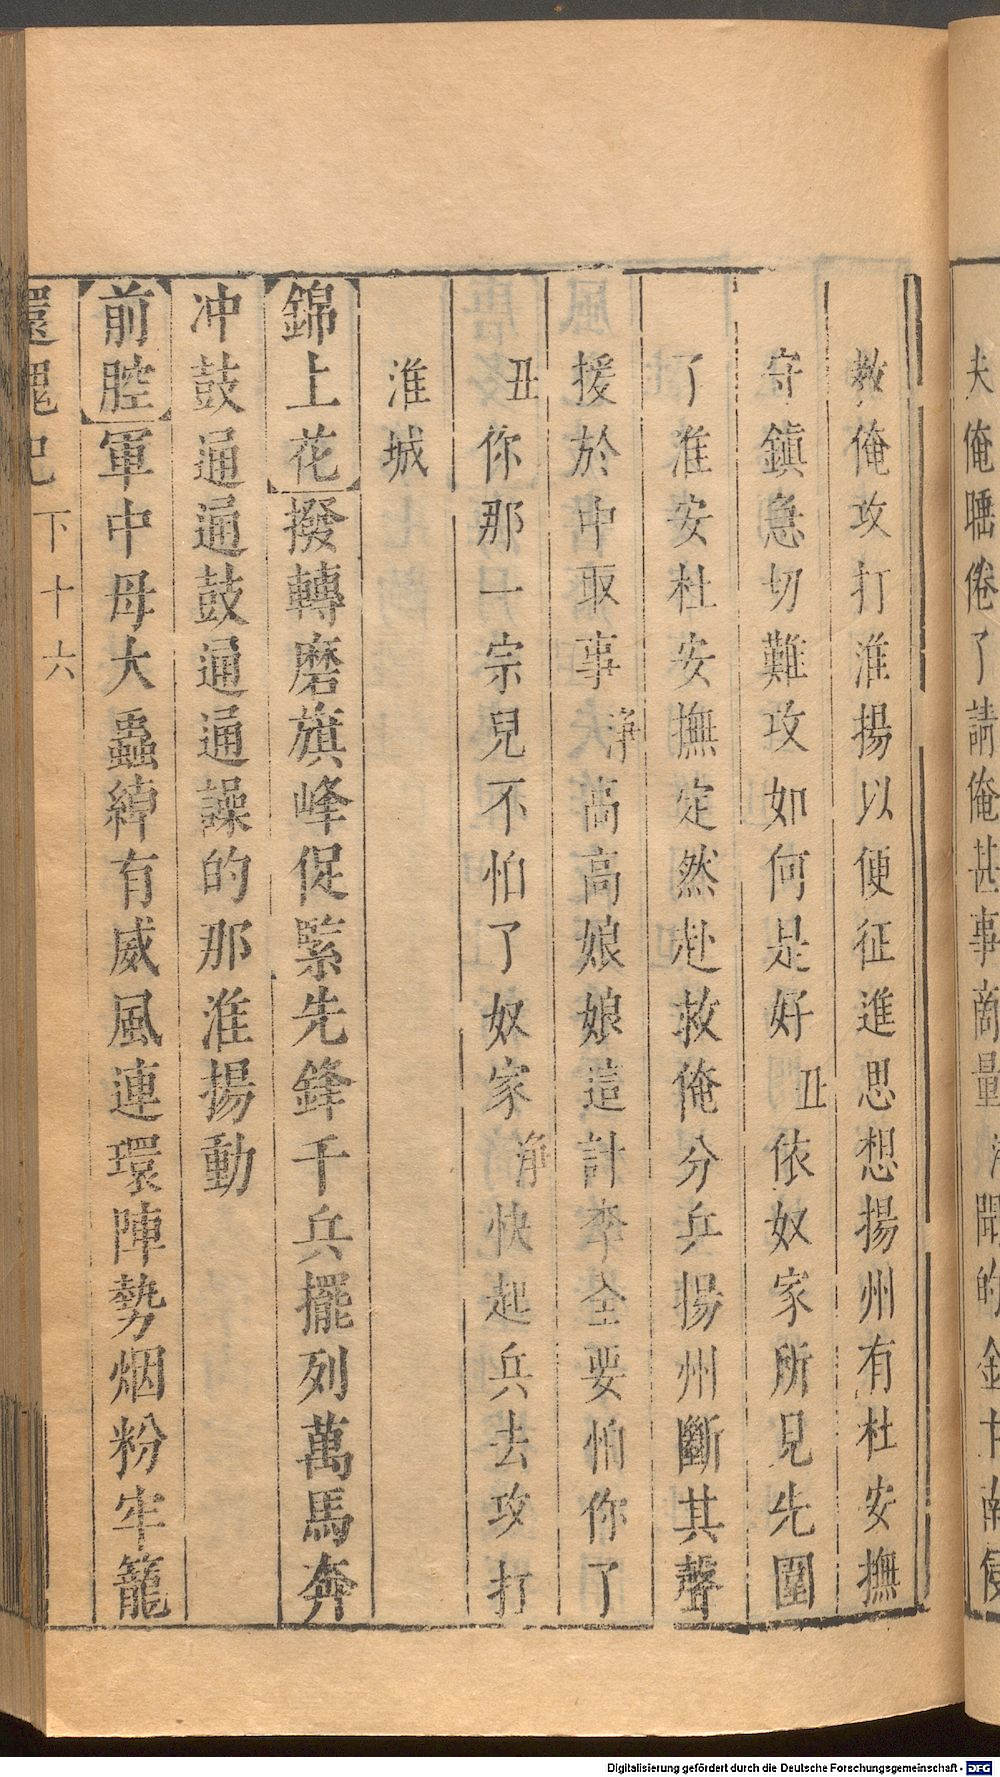 夫俺睡倦了請俺甚事商量淨聞的金主南侵
教俺攻打淮揚以便征進思想揚州有杜安撫
守鎮急切難攻如何是好丑依奴家所見先圍
了淮安杜安撫定然赴救俺分兵揚州斷其聲
援於中取事淨高高娘娘這計李全要怕你了
丑你那一宗兒不怕了奴家淨快起兵去攻打
淮城
【錦上花】撥轉磨旗峰促緊先鋒千兵擺列萬馬奔
冲鼓通通鼓通通譟的那淮揚動
【前腔】軍中母大蟲綽有威風連環陣勢烟粉牢籠
還魂記 下 十六
Digitalisierung gefördert durch die Deutsche Forschungsgemeinschaft - DFG